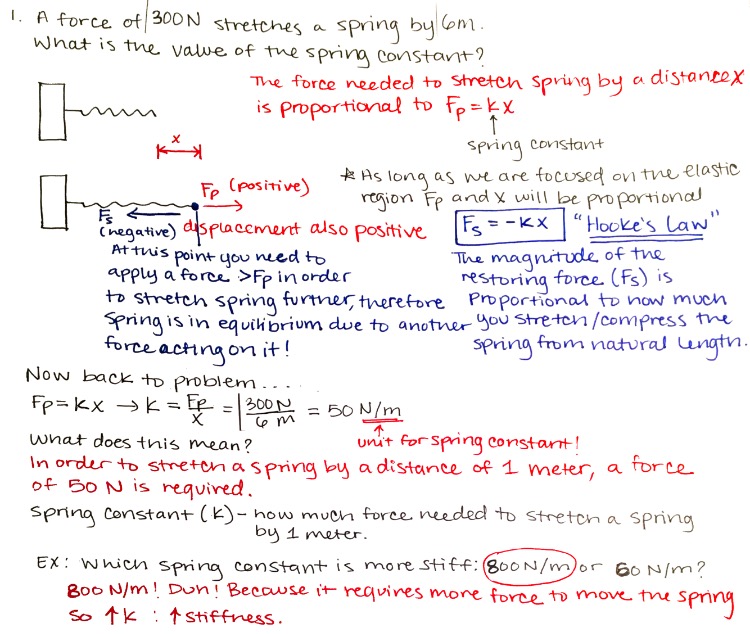 1. A force of 300N stretches a spring by 6m.
What is the value of the spring constant?
The force needed to stretch spring by a distance x
is proportional to Fp = kx
↑
spring constant
x
Fp (positive)
* As long as we are focused on the elastic
region Fp and x will be proportional
Fs
(negative) displacement also positive
At this point you need to
apply a force >Fp in order
to stretch spring further, therefore
spring is in equilibrium due to another
force acting on it!
Fs = -kx "Hooke's Law"
The magnitude of the
restoring force (Fs) is
Proportional to how much
you stretch/compress the
spring from natural length.
Now back to problem....
Fp = kx → k = Fp/x = 300N/6 m = 50 N/m
What does this mean?
unit for spring constant!
In order to stretch a spring by a distance of 1 meter, a force
of 50 N is required.
Spring Constant (k) - how much force needed to stretch a spring
by 1 meter.
EX: Which spring constant is more stiff: 800N/m or 60 N/m?
800 N/m! Duh! Because it requires more force to move the spring
So ↑k : ↑stiffness.